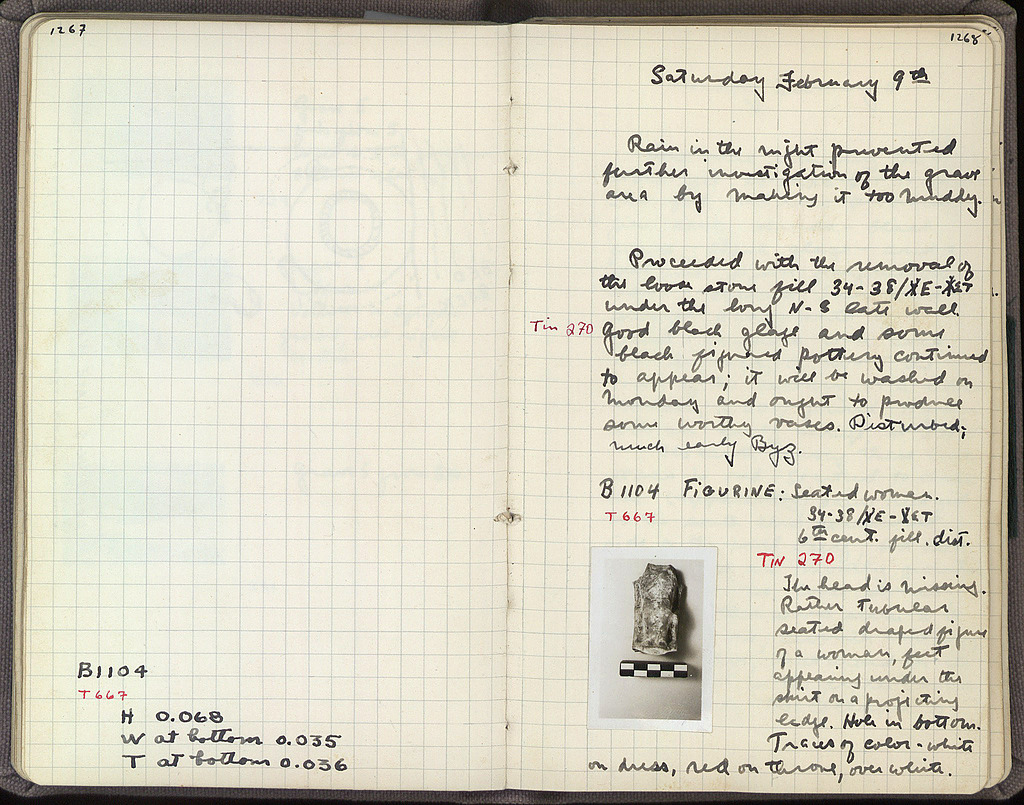 1267
B1104
T667
H 0.068
W at bottom 0.035
T at bottom 0.036
1268
Saturday February 9th
Rain in the night prevented
further investigation of the grave
area by making it too muddy.
Proceeded with the removal of
the loose stone fill 34-38/
under the long N-S late wall.
Tin 270
Good black glaze and some
black figured pottery continued
to appear; it will be washed on
Monday and ought to produce
some worthy vases. Disturbed;
much early Byz.
B1104 FIGURINE: Seated woman.
T667
34-38/
6th cent. fill. dist.
TIN 270
The head is missing.
Rather tubular
seated draped figure
of a woman, feet
appearing under the
skirt on a projecting
ledge. Hole in bottom.
Traces of color - white
on dress, red on throne, over white.